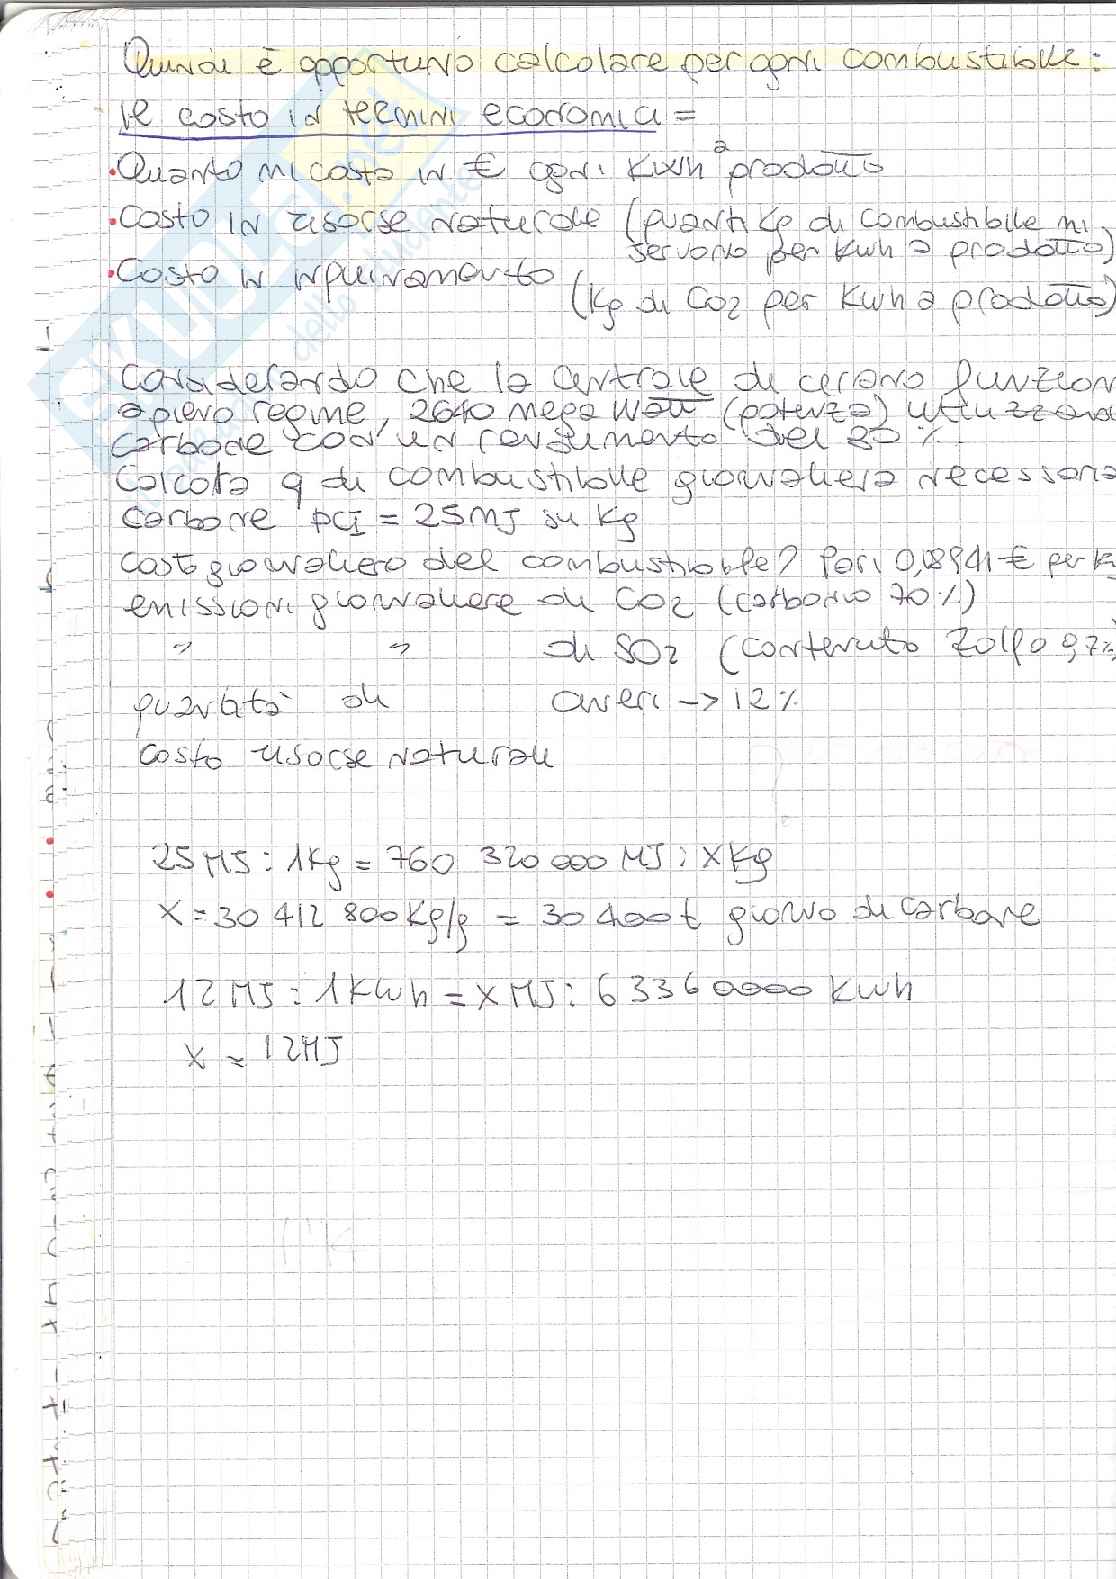 Quindi è opportuno calcolare per ogni combustibile:
il costo in termini economici =
• Quanto mi costa in € ogni Kwh a prodotto
• Costo in risorse naturale (quanti Kg di combustibile mi
servono per Kwh a prodotto)
• Costo in inquinamento
(Kg di CO2 per Kwh a prodotto)
Considerando che la centrale di cerano funzion
a pieno regime, 2640 mega Watt (potenza) utilizzand
carbone con un rendimento del 30%.
Calcola q di combustibile giornaliera necessaria
carbone pcI = 25MJ su Kg
costo giornaliero del combustibile? Pari 0,18941 € per K
emissioni giornaliere di CO2 (carbonio 70%)
" " di SO2 (contenuto zolfo 0,7%
quantità di ceneri -> 12%
costo risorse naturali
25 MJ : 1Kg = 760 320 000 MJ : X Kg
X = 30 412 800 Kg/g = 30 400 t giorno di carbone
12 MJ : 1 KWh = X MJ : 63360000 Kwh
X = 12MJ